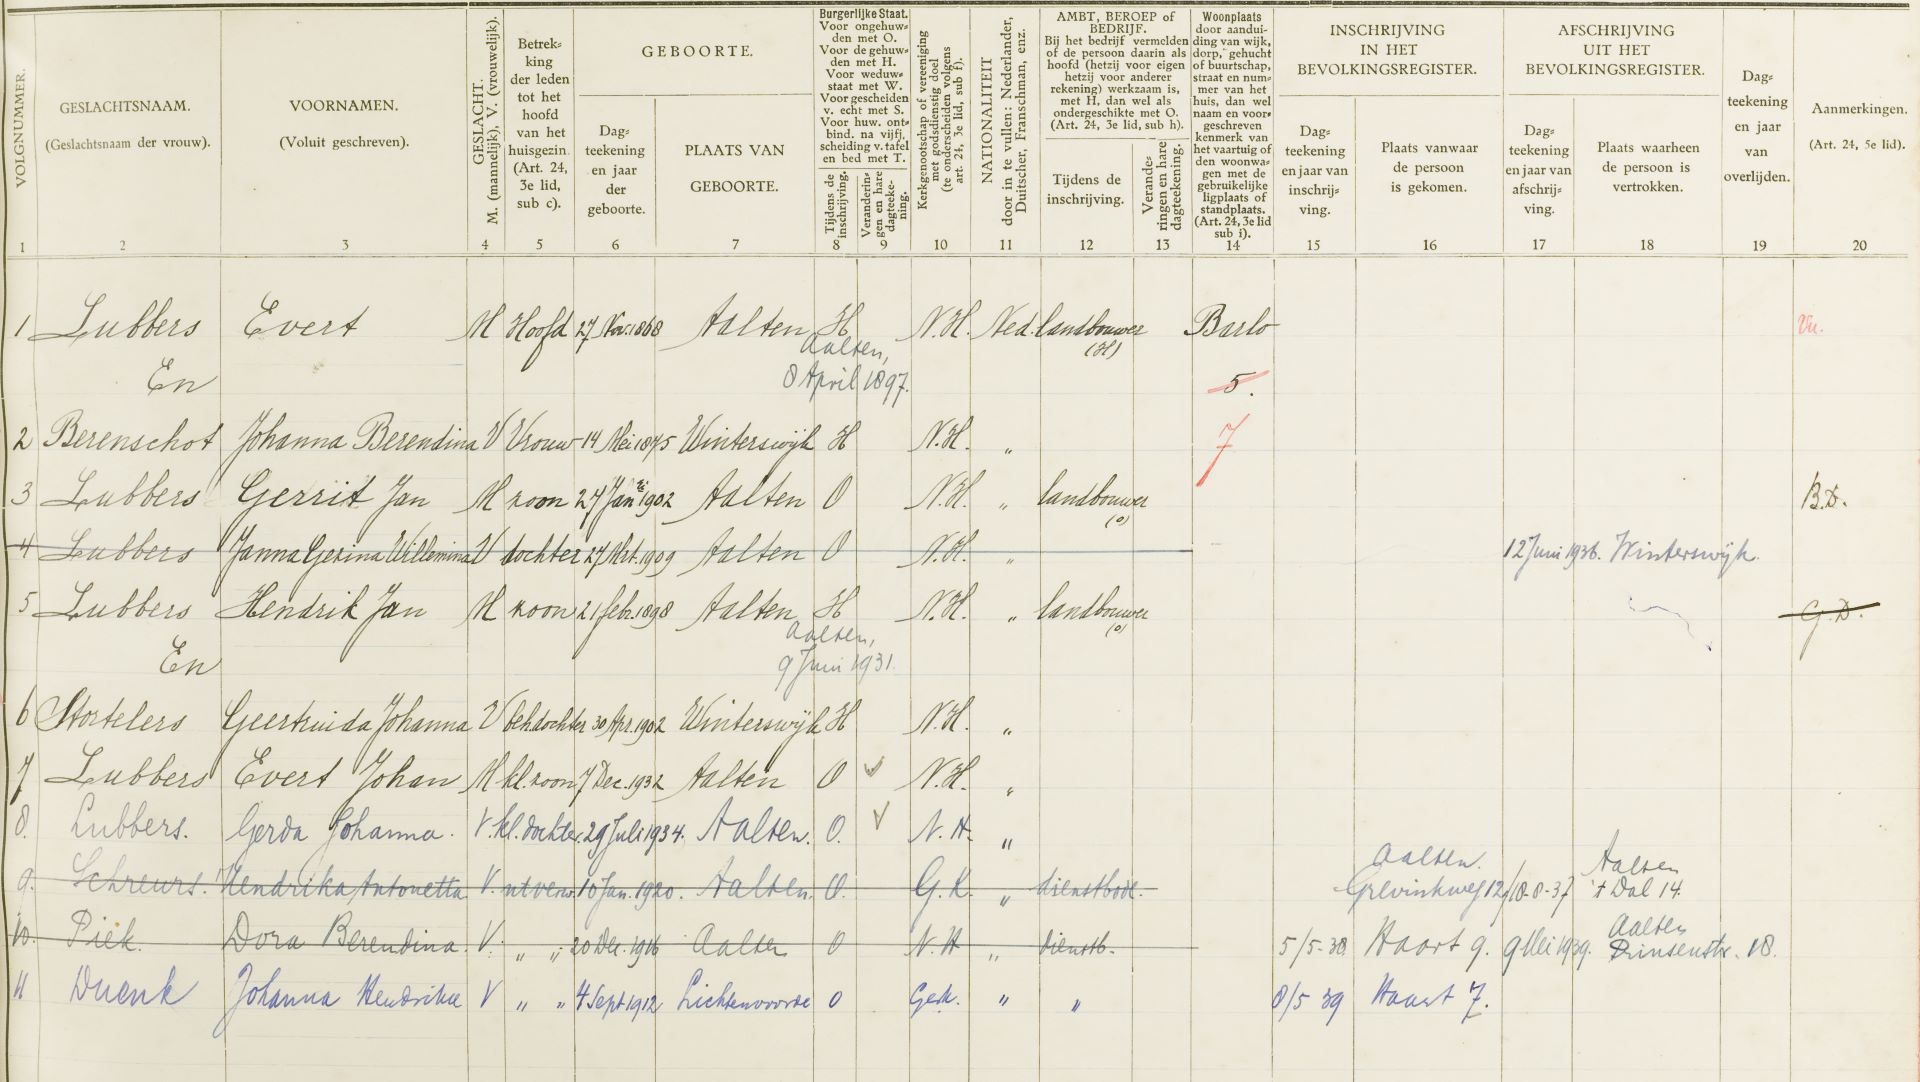 VOLGNUMMER.
1
GESLACHTSNAAM.
(Geslachtsnaam der vrouw).
2
VOORNAMEN.
(Voluit geschreven).
3
GESLACHT.
M. (mannelijk), V. (vrouwelijk).
4
Betrek-
king
der leden
tot het
hoofd
van het
huisgezin.
(Art. 24,
3e lid,
sub c).
5
GEBOORTE.
Dag-
teekening
en jaar
der
geboorte.
6
PLAATS VAN
GEBOORTE.
7
Burgerlijke Staat.
Voor ongehuw-
den met O.
Voor de gehuw-
den met H.
Voor weduw-
staat met W.
Voor gescheiden
v. echt met S.
Voor huw. ont-
bind. na vijfj.
scheiding v. tafel
en bed met T.
Tijdens de
inschrijving.
8
Veranderin-
gen en hare
dagteeke-
ning.
9
Kerkgenootschap of vereeniging
met godsdienstig doel
(te onderscheiden volgens
art. 24, 3e lid, sub f).
10
NATIONALITEIT
door in te vullen: Nederlander,
Duitscher, Franschman, enz.
11
AMBT, BEROEP of
BEDRIJF.
Bij het bedrijf vermelden
of de persoon daarin als
hoofd (hetzij voor eigen
hetzij voor anderer
rekening) werkzaam is,
met H, dan wel als
ondergeschikte met O.
(Art. 24, 3e lid, sub h).
Tijdens de
inschrijving.
12
Verande-
ringen en hare
dagteekening.
13
Woonplaats
door aandui-
ding van wijk,
dorp, gehucht
of buurtschap,
straat en num-
mer van het
huis, dan wel
naam en voor-
geschreven
kenmerk van
het vaartuig of
den woonwa-
gen met de
gebruikelijke
ligplaats of
standplaats.
(Art. 24, 3e lid
sub i).
14
INSCHRIJVING
IN HET
BEVOLKINGSREGISTER.
Dag-
teekening
en jaar van
inschrij-
ving.
15
Plaats vanwaar
de persoon
is gekomen.
16
AFSCHRIJVING
UIT HET
BEVOLKINGSREGISTER.
Dag-
teekening
en jaar van
afschrij-
ving.
17
Plaats waarheen
de persoon is
vertrokken.
18
Dag-
teekening
en jaar
van
overlijden.
19
Aanmerkingen.
(Art. 24, 5e lid).
20
1 Lubbers Evert M Hoofd 27 Nov. 1868 Aalten H N.H. Ned. landbouwer Barlo
(H)
Aalten,
En 8 April 1897. 5.
2 Berenschot Johanna Berendina V Vrouw 14 Mei 1875 Winterswijk H N.H. „ 7
3 Lubbers Gerrit Jan M zoon 27 Jan. 1902 Aalten O N.H. „ landbouwer B.D.
(o)
4 Lubbers Janna Gezina Willemina V dochter 27 Mrt. 1909 Aalten O N.H. „ 12 Juni 1936. Winterswijk.
5 Lubbers Hendrik Jan M zoon 21 febr. 1898 Aalten H N.H. „ landbouwer G.D.
(o)
Aalten,
En 9 Juni 1931.
6 Stortelers Geertruida Johanna V beh.dochter 30 Apr. 1902 Winterswijk H N.H. „
7 Lubbers Evert Johan M kl.zoon 7 Dec. 1932 Aalten O N.H. „
8. Lubbers. Gerda Johanna. V. kl. dochter. 29 Juli 1934. Aalten. O. N.H. „
Aalten. Aalten
9. Schreurs. Hendrika Antonetta V. nt verw. 10 Jan. 1920. Aalten. O. G.K. „ dienstbode. Grevinkweg 12 18-8-37 't Dal 14.
Aalten
10. Piek. Dora Berendina. V. „ „ 20 Dec. 1916 Aalten O N.H „ dienstb. 5/5-38 Haart 9. 9 Mei 1939. Prinsenstr. 18.
11 Duenk Johanna Hendrika V „ „ 4 Sept 1912 Lichtenvoorde O Gerk. „ „ 8/5 39 Haart 7.